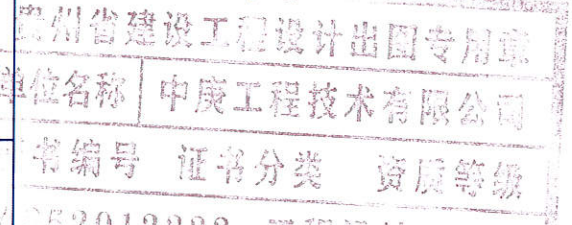 贵州省建设工程设计出图专用章
单位名称 中庚工程技术有限公司
书编号 证书分类 资质等级